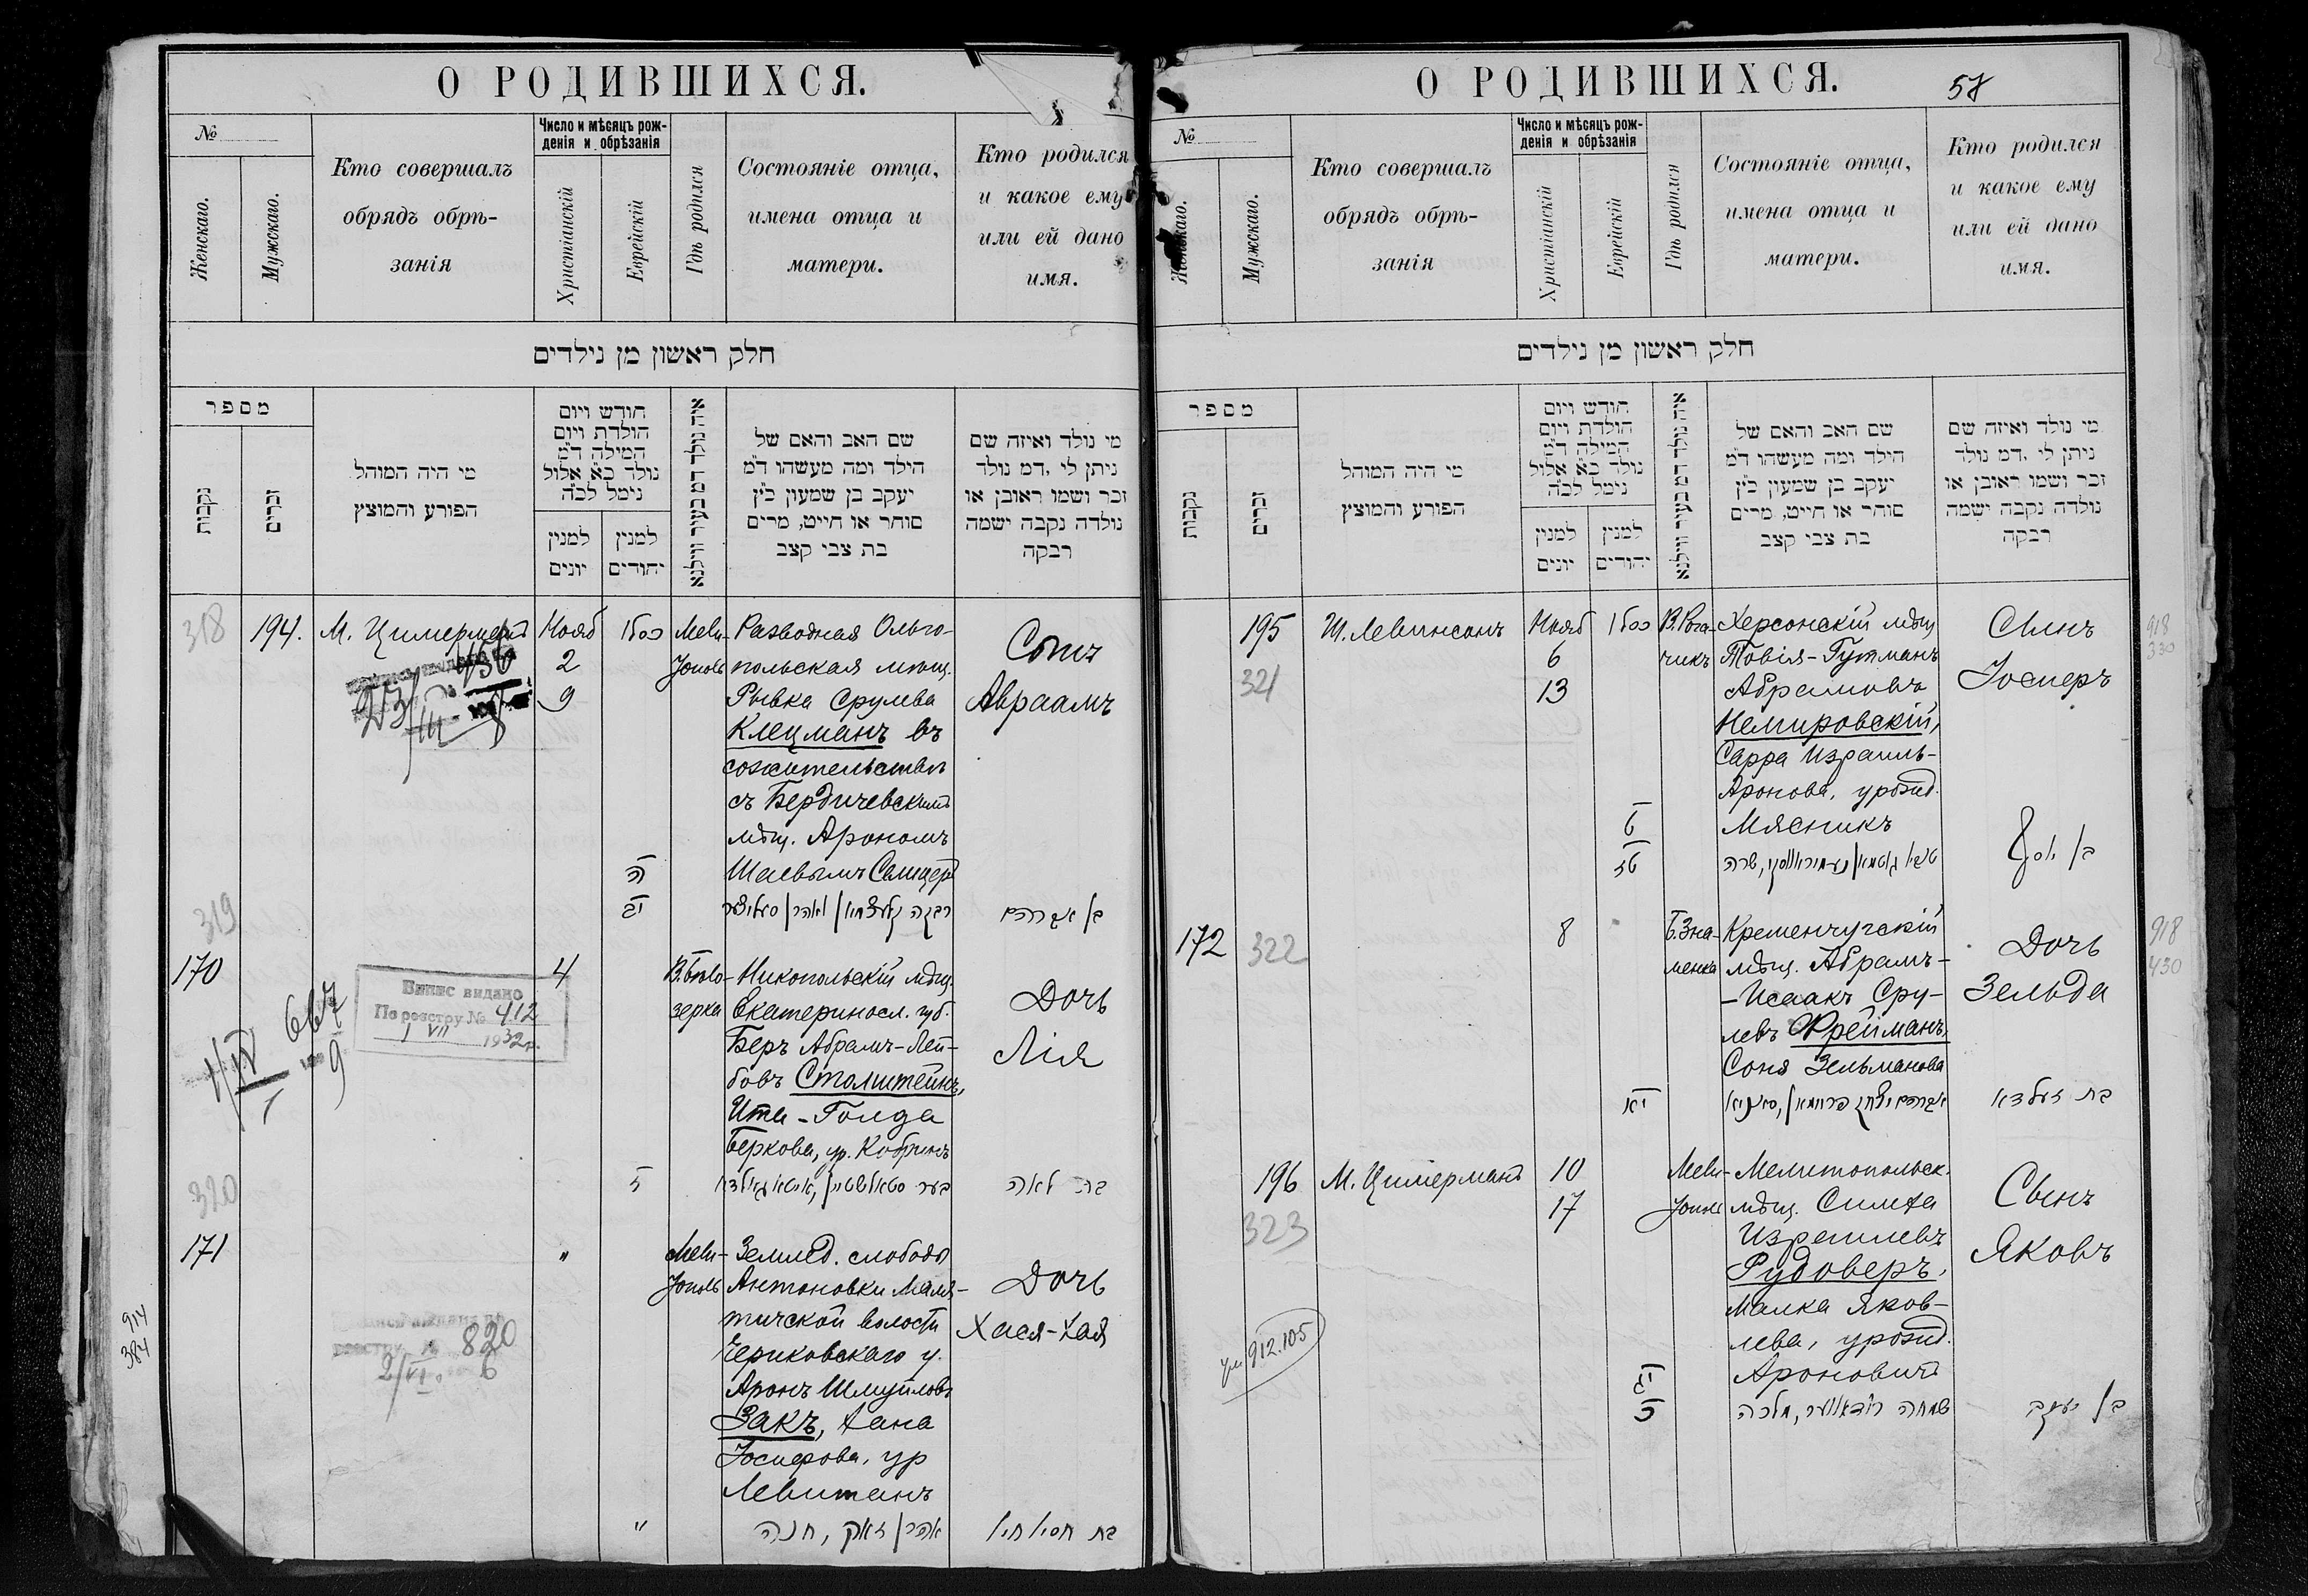 О РОДИВШИХСЯ.
№
Женскаго.
Мужскаго.
Кто совершалъ
обрядъ обрѣ-
занія
Число и мѣсяцъ рож-
денія и обрѣзанія
Христіанскій
Еврейскій
Гдѣ родился
Состояніе отца,
имена отца и
матери.
Кто родился
и какое ему
или ей дано
имя.
חלק ראשון מן נילדים
מספר
נקבות
זכרים
מי היה המוהל
הפורע והמוצץ
חודש ויום
הולדת ויום
המילה ד"מ
נולד כ"א אלול
נימל לכ"ה
למנין
יונים
למנין
יהודים
איה נולד דמ בעיר ווילנא
שם האב והאם של
הילד ומה מעשהו ד"מ
יעקב בן שמעון כ"ץ
סוחר או חייט, מרים
בת צבי קצב
מי נולד ואיזה שם
ניתן לי, דמ נולד
זכר ושמו ראובן או
נולדה נקבה ישמה
רבקה
318
194.
М. Цимерманъ
456
Нояб
2
9
כסלו
Мели-
тополь
Разводная Ольго-
польская мѣщ.
Рывка Срулева
Клецманъ въ
сожительствѣ
съ Бердичевскимъ
мѣщ. Арономъ
Шаевымъ
Сынъ
Авраамъ
ה
יב
בן אברהם
319
170
667
9
Випис видано
По реєстру № 412
1 VII 1932 р.
4
В. Бѣло-
зерка
Никопольскій мѣщ.
Екатериносл. губ.
Беръ Абрамъ-Лей-
бовъ Столштейнъ,
Ита-Голда
Беркова, ур. Кобринъ
Дочь
Лія
ז
בת לאה
320
171
914
384
820
2/VI 6
"
Мели-
тополь
Землед. слободы
Антоновки Маля-
тичской волости
Чериковскаго у.
Аронъ Шмуйловъ
Закъ, Хана
Іосифова, ур
Левитанъ
Дочь
Хася-Хая
"
אהרן זאק, חנה
О РОДИВШИХСЯ.
58
№
Женскаго.
Мужскаго.
Кто совершалъ
обрядъ обрѣ-
занія
Число и мѣсяцъ рож-
денія и обрѣзанія
Христіанскій
Еврейскій
Гдѣ родился
Состояніе отца,
имена отца и
матери.
Кто родился
и какое ему
или ей дано
имя.
חלק ראשון מן נילדים
מספר
נקבות
זכרים
מי היה המוהל
הפורע והמוצץ
חודש ויום
הולדת ויום
המילה ד"מ
נולד כ"א אלול
נימל לכ"ה
למנין
יונים
למנין
יהודים
איה נולד דמ בעיר ווילנא
שם האב והאם של
הילד ומה מעשהו ד"מ
יעקב בן שמעון כ"ץ
סוחר או חייט, מרים
בת צבי קצב
מי נולד ואיזה שם
ניתן לי, דמ נולד
זכר ושמו ראובן או
נולדה נקבה ישמה
רבקה
195
321
Ш. Левинсонъ
Нояб
6
13
כסלו
В. Рога-
чикъ
Херсонскій мѣщ
Товія-Гутманъ
Абрамовъ
Немировскій,
Сарра Израиль-
Аронова, урожд.
Мясникъ
Сынъ
Іосифъ
918
330
ט
טז
בן יוסף
172
322
8
Б. Зна-
менка
Кременчугскій
мѣщ. Абрамъ-
-Исаакъ Сру-
левъ Фрейманъ,
Соня Зельманова
Дочь
Зельда
918
430
יא
בת זעלדא
196
323
М. Цимерманъ
10
17
Мели-
тополь
Мелитопольск.
мѣщ. Симха
Израилевъ
Рудоверъ,
Малка Яков-
лева, урожд.
Ароновичъ
Сынъ
Яковъ
912.105
יג
שמחה רודאווער, מלכה
בן יעקב